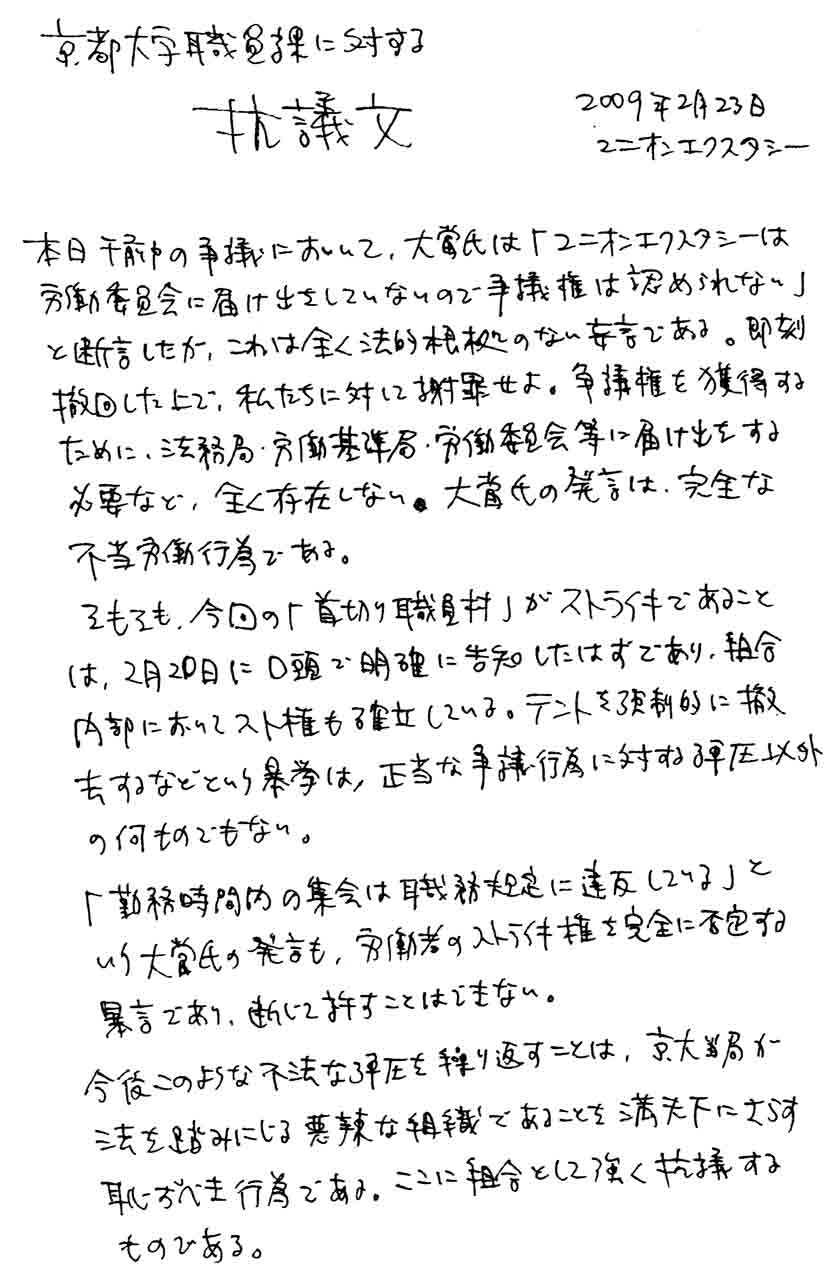 京都大学職員課に対する
抗議文
2009年2月23日
ユニオンエクスタシー
本日午前中の争議において、大賞氏は「ユニオンエクスタシーは
労働委員会に届け出をしていないので争議権は認められない」
と断言したが、これは全く法的根拠のない妄言である。即刻
撤回した上で、私たちに対して謝罪せよ。争議権を獲得する
ために、法務局・労働基準局・労働委員会等に届け出をする
必要など、全く存在しない。大賞氏の発言は、完全な
不当労働行為である。
そもそも、今回の「首切り職員村」がストライキであること
は、2月20日に口頭で明確に告知したはずであり、組合
内部においてスト権も確立している。テントを強制的に撤
去するなどという暴挙は、正当な争議行為に対する弾圧以外
の何ものでもない。
「勤務時間内の集会は職務規定に違反している」と
いう大賞氏の発言も、労働者のストライキ権を完全に否定する
暴言であり、断じて許すことはできない。
今後このような不法な弾圧を繰り返すことは、京大当局が
法を踏みにじる悪辣な組織であることを満天下にさらす
恥ずべき行為である。ここに組合として強く抗議する
ものである。